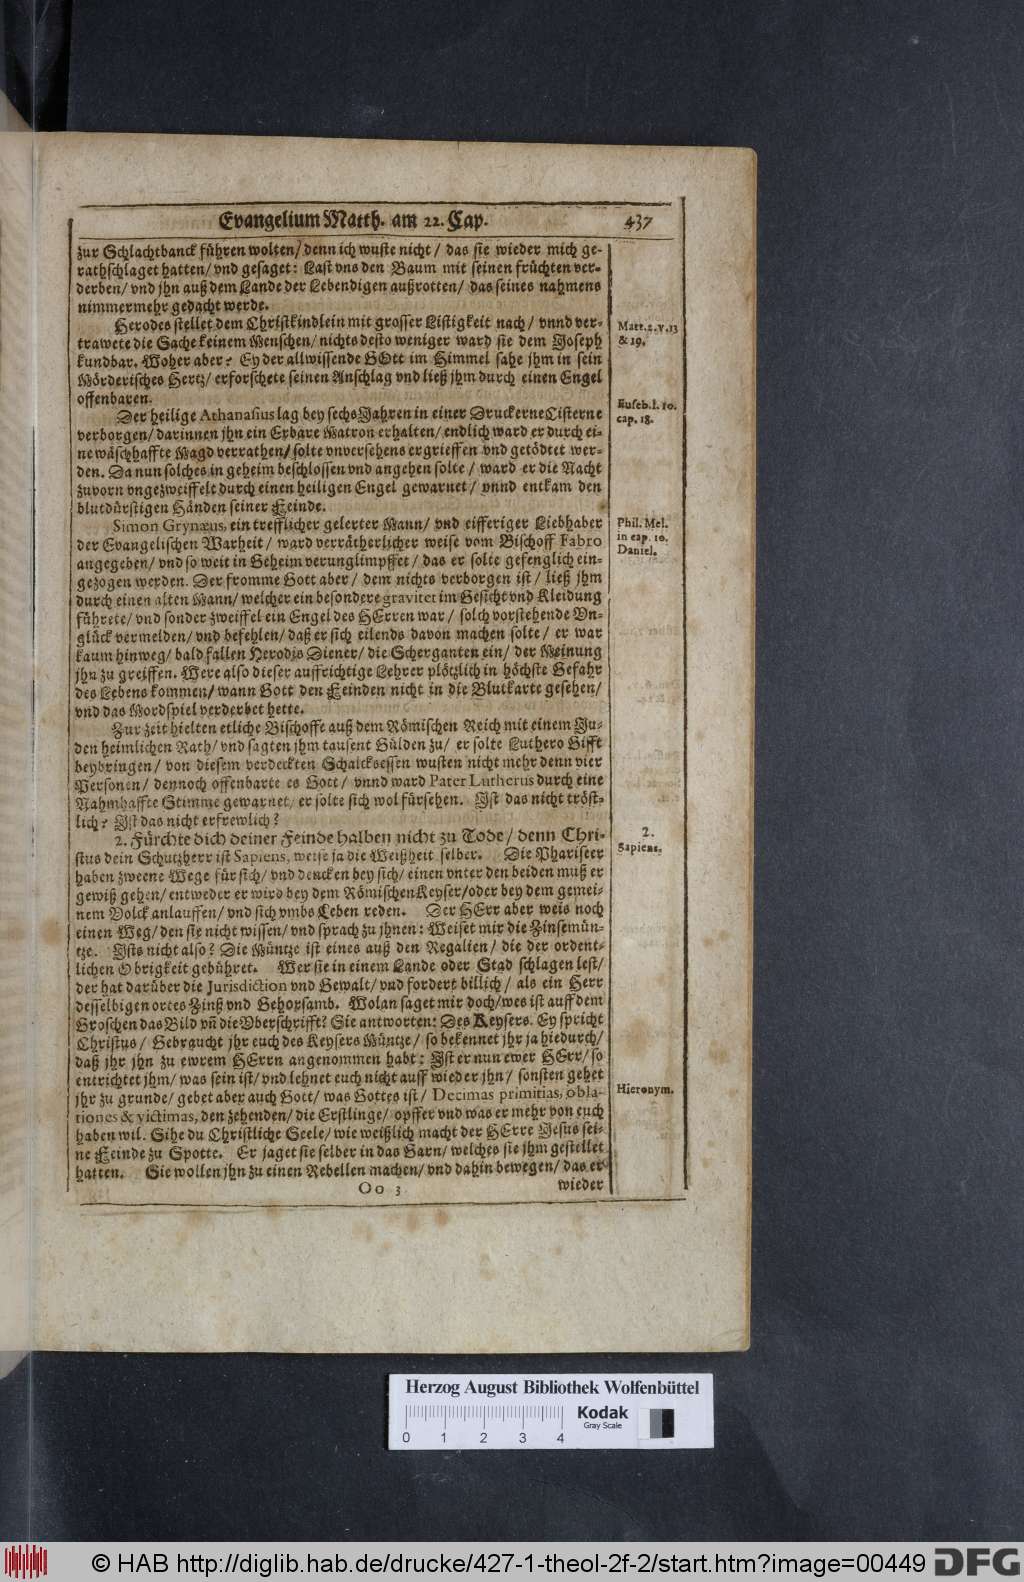 Evangelium Matth. am 22. Cap. 437
zur Schlachtbanck führen wolten/ denn ich wuste nicht/ das sie wieder mich ge-
rathschlaget hatten/ vnd gesaget: Last vns den Baum mit seinen früchten ver-
derben/ vnd jhn auß dem Lande der Lebendigen außrotten/ das seines nahmens
nimmermehr gedacht werde.
Herodes stellet dem Christkindlein mit grosser Listigkeit nach/ vnnd ver-
trawete die Sache keinem Menschen/ nichts desto weniger ward sie dem Joseph
kundbar. Woher aber? Ey der allwissende GOtt im Himmel sahe jhm in sein
Mörderisches Hertz/ erforschete seinen Anschlag vnd ließ jhm durch einen Engel
offenbaren.
Matt. 2. v. 13
& 19.
Der heilige Athanasius lag bey sechs Jahren in einer Druckerne Cisterne
verborgen/ darinnen jhn ein Erbare Matron erhalten/ endlich ward er durch ei-
ne wäschhaffte Magd verrathen/ solte vnversehens ergrieffen vnd getödtet wer-
den. Da nun solches in geheim beschlossen vnd angehen solte/ ward er die Nacht
zuvorn vngezweiffelt durch einen heiligen Engel gewarnet/ vnnd entkam den
blutdürstigen Händen seiner Feinde.
Euseb. l. 10.
cap. 18.
Simon Grynæus, ein trefflicher gelerter Mann/ vnd eifferiger Liebhaber
der Evangelischen Warheit/ ward verrätherlicher weise vom Bischoff Fabro
angegeben/ vnd so weit in Geheim verunglimpffet/ das er solte gefenglich ein-
gezogen werden. Der fromme Gott aber/ dem nichts verborgen ist/ ließ jhm
durch einen alten Mann/ welcher ein besondere gravitet im Gesicht vnd Kleidung
führete/ vnd sonder zweiffel ein Engel des HErren war/ solch vorstehende Vn-
glück vermelden/ vnd befehlen/ daß er sich eilends davon machen solte/ er war
kaum hinweg/ bald fallen Herodis Diener/ die Scherganten ein/ der Meinung
jhn zu greiffen. Were also dieser auffrichtige Lehrer plötzlich in höchste Gefahr
des Lebens kommen/ wann Gott den Feinden nicht in die Blutkarte gesehen/
vnd das Mordspiel verderbet hette.
Phil. Mel.
in cap. 10.
Daniel.
Zur zeit hielten etliche Bischoffe auß dem Römischen Reich mit einem Ju-
den heimlichen Rath/ vnd sagten jhm tausent Gülden zu/ er solte Luthero Gifft
beybringen/ von diesem verdeckten Schalcksessen wusten nicht mehr denn vier
Personen/ dennoch offenbarte es Gott/ vnnd ward Pater Lutherus durch eine
Nahmhaffte Stimme gewarnet/ er solte sich wol fürsehen. Ist das nicht tröst-
lich? Ist das nicht erfrewlich?
2. Fürchte dich deiner Feinde halben nicht zu Tode/ denn Chri-
stus dein Schutzherr ist Sapiens, weise ja die Weißheit selber. Die Phariseer
haben zweene Wege für sich/ vnd dencken bey sich/ einen vnter den beiden muß er
gewiß gehen/ entweder er wird bey dem Römischen Keyser/ oder bey dem gemei-
nem Volck anlauffen/ vnd sich vmbs Leben reden. Der HErr aber weis noch
einen Weg/ den sie nicht wissen/ vnd sprach zu jhnen: Weiset mir die Zinsemün-
tze. Ists nicht also? Die Müntze ist eines auß den Regalien/ die der ordent-
lichen Obrigkeit gebühret. Wer sie in einem Lande oder Stad schlagen lest/
der hat darüber die Jurisdiction vnd Gewalt/ vnd fordert billich/ als ein Herr
desselbigen ortes Zinß vnd Gehorsamb. Wolan saget mir doch/ wes ist auff dem
Groschen das Bild vñ die Vberschrifft? Sie antworten: Des Keysers. Ey spricht
Christus/ Gebraucht jhr euch des Keysers Müntze/ so bekennet jhr ja hiedurch/
daß jhr jhn zu ewrem HErrn angenommen habt: Ist er nun ewer HErr/ so
entrichtet jhm/ was sein ist/ vnd lehnet euch nicht auff wieder jhn/ sonsten gehet
jhr zu grunde/ gebet aber auch Gott/ was Gottes ist/ Decimas primitias, obla-
tiones & victimas, den zehenden/ die Erstlinge/ opffer vnd was er mehr von euch
haben wil. Sihe du Christliche Seele/ wie weißlich macht der HErre Jesus sei-
ne Feinde zu Spotte. Er jaget sie selber in das Garn/ welches sie jhm gestellet
hatten. Sie wollen jhn zu einen Rebellen machen/ vnd dahin bewegen/ das er
2.
Sapiens.
Hieronym.
Oo 3 wieder
Herzog August Bibliothek Wolfenbüttel
Kodak
Gray Scale
0 1 2 3 4
© HAB http://diglib.hab.de/drucke/427-1-theol-2f-2/start.htm?image=00449 DFG